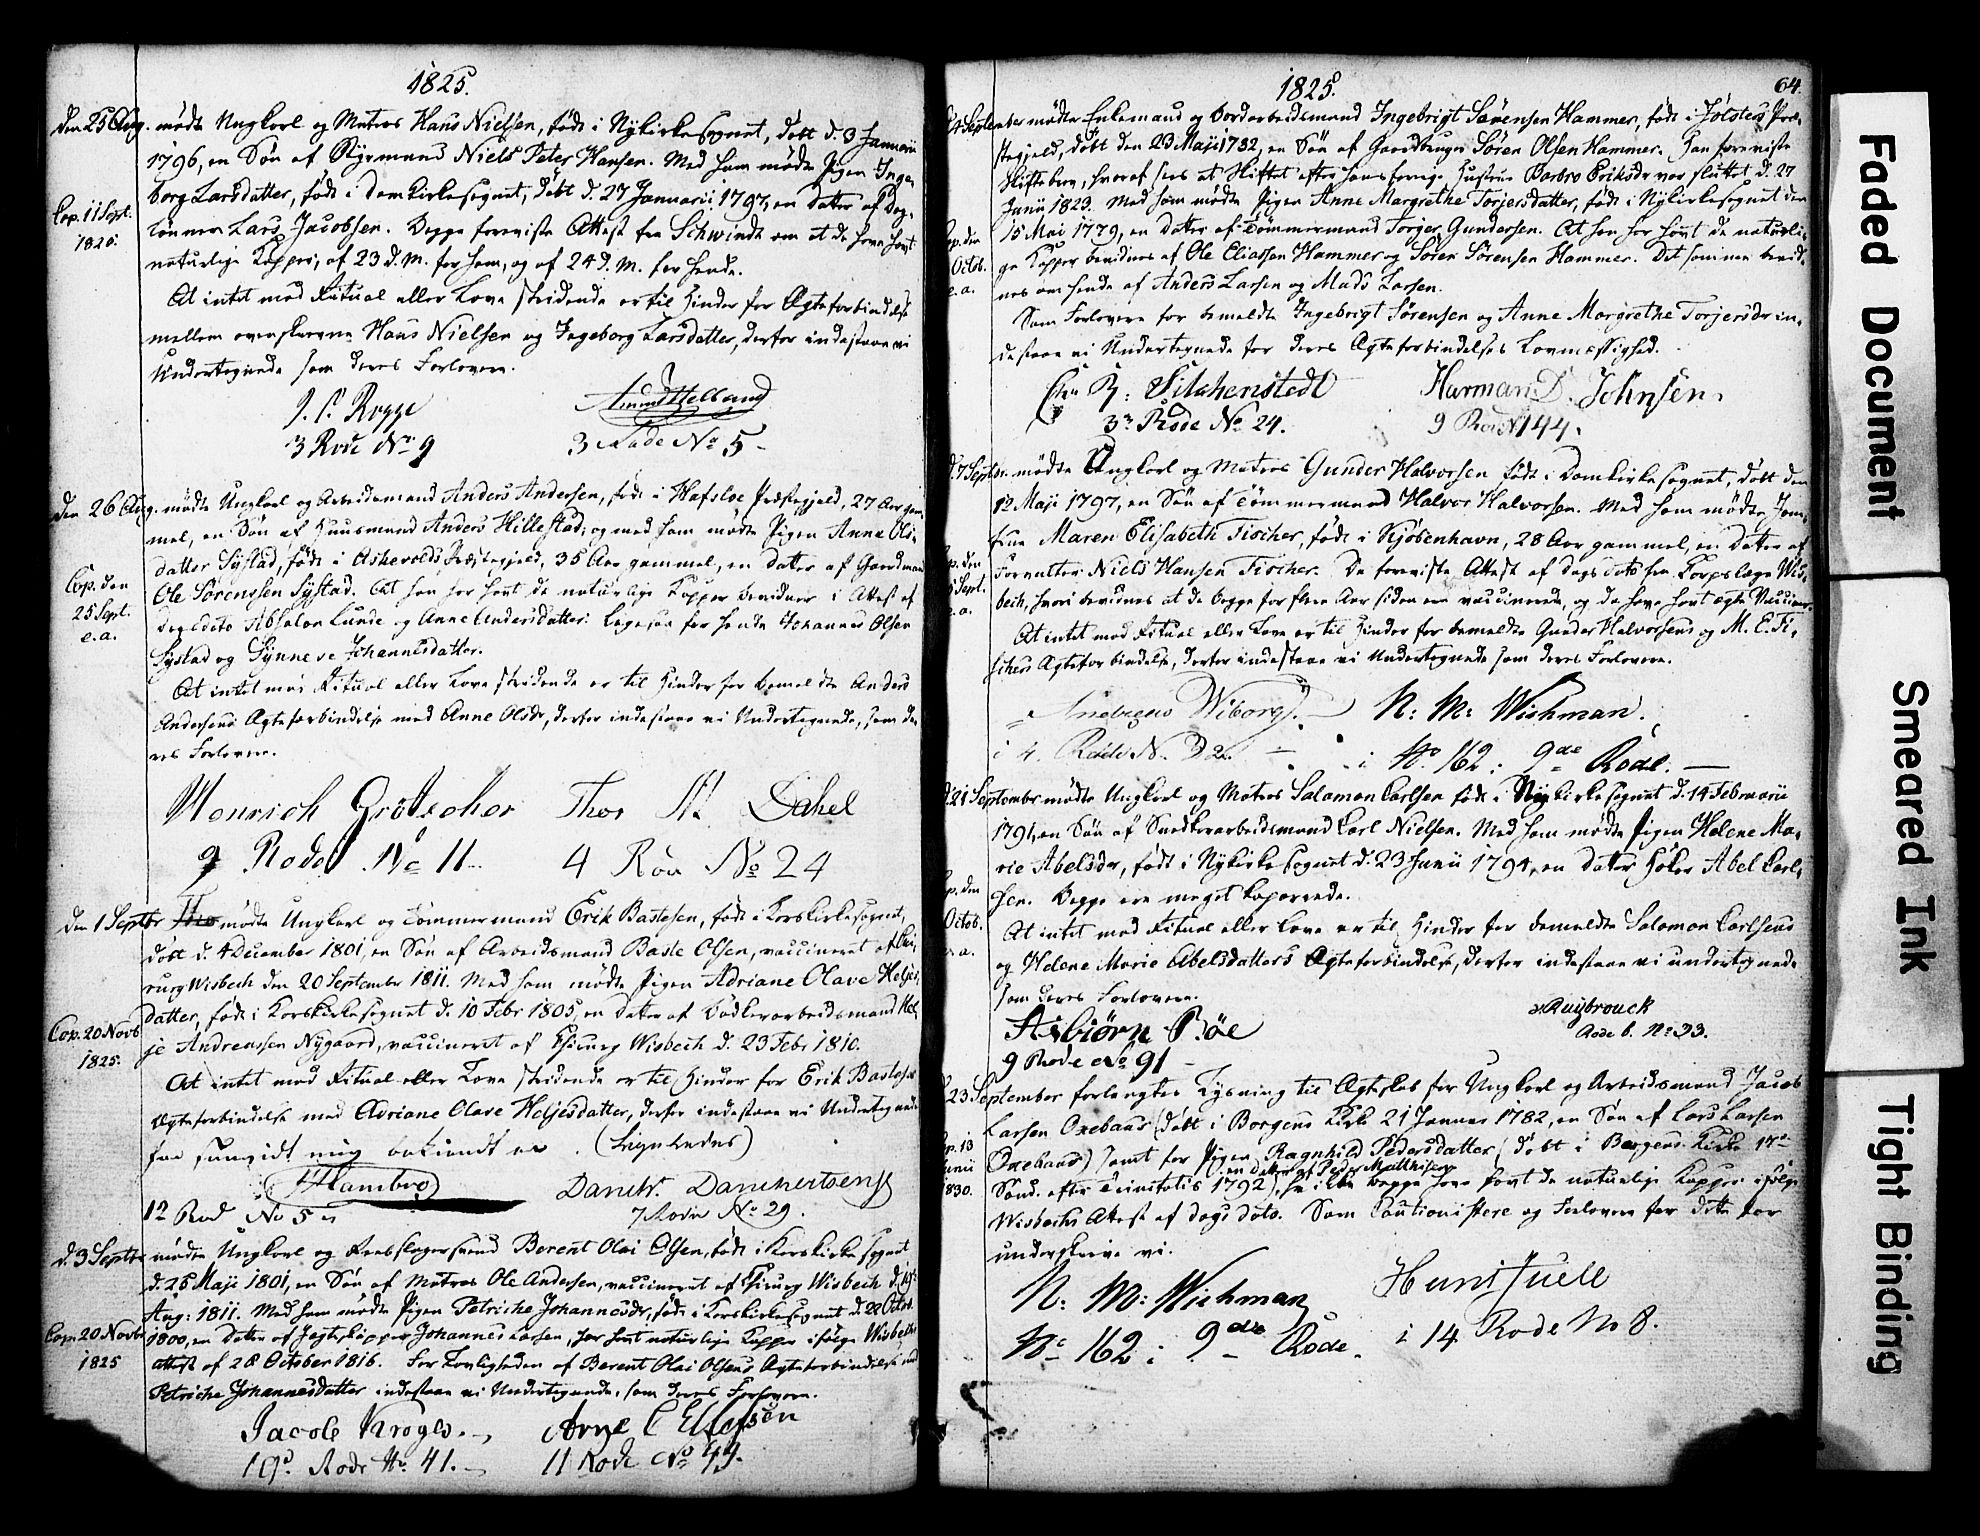 1825.
den 25 Aug. mødte Ungkarl og Matros Hans Nielsen, født i Nykirkesognet, døbt d. 3 Januarii
1796, en Søn af Styrmand Niels Peter Hansen. Med ham mødte Pigen Inge-
borg Larsdatter, født i Domkirkesognet, døbt d. 27 Januarii 1797, en Datter af Dag-
Cop. 11 Sept.
1825.
lønner Lars Jacobsen. Begge foreviste Attest fra Schwindt om at de have havt
naturlige Kopper, af 23 d. M. for ham, og af 24 d. M. for hende.
At intet mod Ritual eller Love stridende er til Hinder for Ægteforbindelse
mellem ovenskrevne Hans Nielsen og Ingeborg Larsdatter, derfor indestaae vi
Undertegnede som deres Forlovere.
J. P. Rogge
Amund Helland
3 Rode No. 9
3 Rode No 5
den 26 Aug. mødte Ungkarl og Arbeidsmand Anders Andersen, født i Hafsloe Præstegjeld, 27 Aar gam-
mel, en Søn af Huusmand Anders Hillestad; og med ham mødte Pigen Anne Ols-
datter Systad, født i Askevolds Præstegjeld, 35 Aar gammel, en Datter af Gaardmand
Cop. den
25 Sept.
e. a.
Ole Sørenssen Systad. At han har havt de naturlige Kopper bevidner i Attest af
dags dato Absalon Lunde og Anne Andersdatter: Ligesaa for hende Johannes Olsen
Systad og Synneve Johannesdatter.
At intet mod Ritual eller Love stridende er til Hinder for bemeldte Anders
Andersens Ægteforbindelse med Anne Olsdr, derfor indestaae vi Undertegnede, som de-
res Forlovere.
Henrich Grötscher Thor H. Dahl
9 Rode No 11 4 Rode No 24
den 1 Septbr mødte Ungkarl og Tømmermand Erik Bastesen, født i Korskirkesognet,
døbt d. 4 December 1801, en Søn af Arbeidsmand Baste Olsen, vaccineret af Chi-
rurg Wisbech den 20 September 1811. Med ham mødte Pigen Adriane Olave Heljes-
datter, født i Korskirkesognet d. 10 Febr 1805, en Datter af Bødkerarbeidsmand Hel-
Cop. 20 Novb
1825.
je Andreassen Nygaard, vaccineret af Chirurg Wisbech d. 23 Febr 1810.
At intet mod Ritual eller Love stridende er til Hinder for Erik Bastesens
Ægteforbindelse med Adriane Olave Heljesdatter, derfor indestaae vi Undertegnede
saavidt mig bekiendt er
Hambro Danckr. Danckertsen
12 Rod No 5 7 Rode No 29.
d. 3 Septbr mødte Ungkarl og Reebslagersvend Berent Olai Olsen, født i Korskirkesognet
d. 25 Maji 1801, en Søn af Matros Ole Andersen, vaccineret af Chirurg Wisbech d. 19
Aug: 1811. Med ham mødte Pigen Petriche Johannesdr, født i Korskirkesognet d. 22 Octob.
Cop. 20 Novbr
1825
1800, en Datter af Jagteskipper Johannes Larsen, har havt naturlige Kopper ifølge Wisbechs
Attest af 28 October 1816. For Lovligheden af Berent Olai Olsens Ægteforbindelse med
Petriche Johannesdatter indestaae vi Undertegnede, som deres Forlovere.
Jacob Krogh. Arne C Ellefsen
19d. Rode No. 41. 11 Rode No 49.
1825. 64.
September mødte Enkemand og Bordarbeidsmand Ingebrigt Sørensen Hammer, født i Jølsters Præ-
stegjeld, døbt den 23 Maji 1782, en Søn af Gaardbruger Søren Olsen Hammer. Han foreviste
Skiftebrev, hvoraf sees at Skiftet efter hans forrige Hustrue Barbro Eriksdr var sluttet d. 27
Junii 1823. Med ham mødte Pigen Anne Margrethe Torjersdatter, født i Nykirkesognet den
15 Mai 1779, en Datter af Tømmermand Torger Gundersen. At han har havt de naturli-
ge Kopper bevidnes af Ole Eliassen Hammer og Søren Sørensen Hammer. Det samme bevid-
nes om hende af Anders Larsen og Mads Larsen.
Som Forlovere for bemeldte Ingebrigt Sørensen og Anne Margrethe Torjersdr in-
destaae vi Undertegnede for deres Ægteforbindelses Lovmæssighed.
Silchenstedt Harman D. Johnsen.
3 Rode No 24. 9 Rode No 144.
d. 7 Septbr. mødte Ungkarl og Matros Gunder Halvorsen født i Domkirkesognet, døbt den
12 Maji 1797, en Søn af Tømmermand Halvor Halvorsen. Med ham mødte Jom-
frue Maren Elisabeth Fischer, født i Kjøbenhavn, 28 Aar gammel, en Datter af
Forvalter Niels Hansen Fischer. De foreviste Attest af Dags dato fra Corpslæge Wis-
bech, hvori bevidnes at de begge for flere Aar siden ere vaccinerede, og de have havt ægte Vacciner.
At intet mod Ritual eller Love er til Hinder for bemeldte Gunder Halvorsens og M. E. Fi-
schers Ægteforbindelse, derfor indestaae vi Undertegnede som deres Forlovere.
Andreas Wiborg. N: M: Wichman.
i 4. Rode N. 32. i No 162: 9de Rode.
d. 21 Septembr mødte Ungkarl og Matros Salomon Carlsen født i Nykirkesognet d. 14 Februarii
1791, en Søn af Snedkerarbeidsmand Carl Nielsen. Med ham mødte Pigen Helene Ma-
rie Abelsdr, født i Nykirkesognet d. 23 Junii 1794, en Datter Høker Abel Carl-
sen. Begge ere meget koparrede.
At intet mod Ritual eller Love er til Hinder for bemeldte Salomon Carlsens
og Helene Marie Abelsdatters Ægteforbindelse, derfor indestaae vi undertegnede
som deres Forlovere.
Asbiørn Bøe Ruybrouck
9 Rode No 91 Rode 6. No 33.
d. 23 September forlangtes Lysning til Ægteskab for Ungkarl og Arbeidsmand Jacob
Larsen Oxebaas (døbt i Borgens Kirke 21 Januar 1782, en Søn af Lars Larsen
Oxebaas) samt for Pigen Ragnhild Pedersdatter (døbt i Borgens Kirke 17
en Datter af Peder Matthisen
Sønd. efter Trinitatis 1792), begge have havt de naturlige Kopper ifølge
Wisbechs Attest af dags dato. Som Cautionister og Forlovere for dette Par
underskrive vi.
N: M: Wichman Hans Juell
No 162: 9de Rode. i 14 Rode No 8.
Faded Document
Smeared Ink
Tight Binding